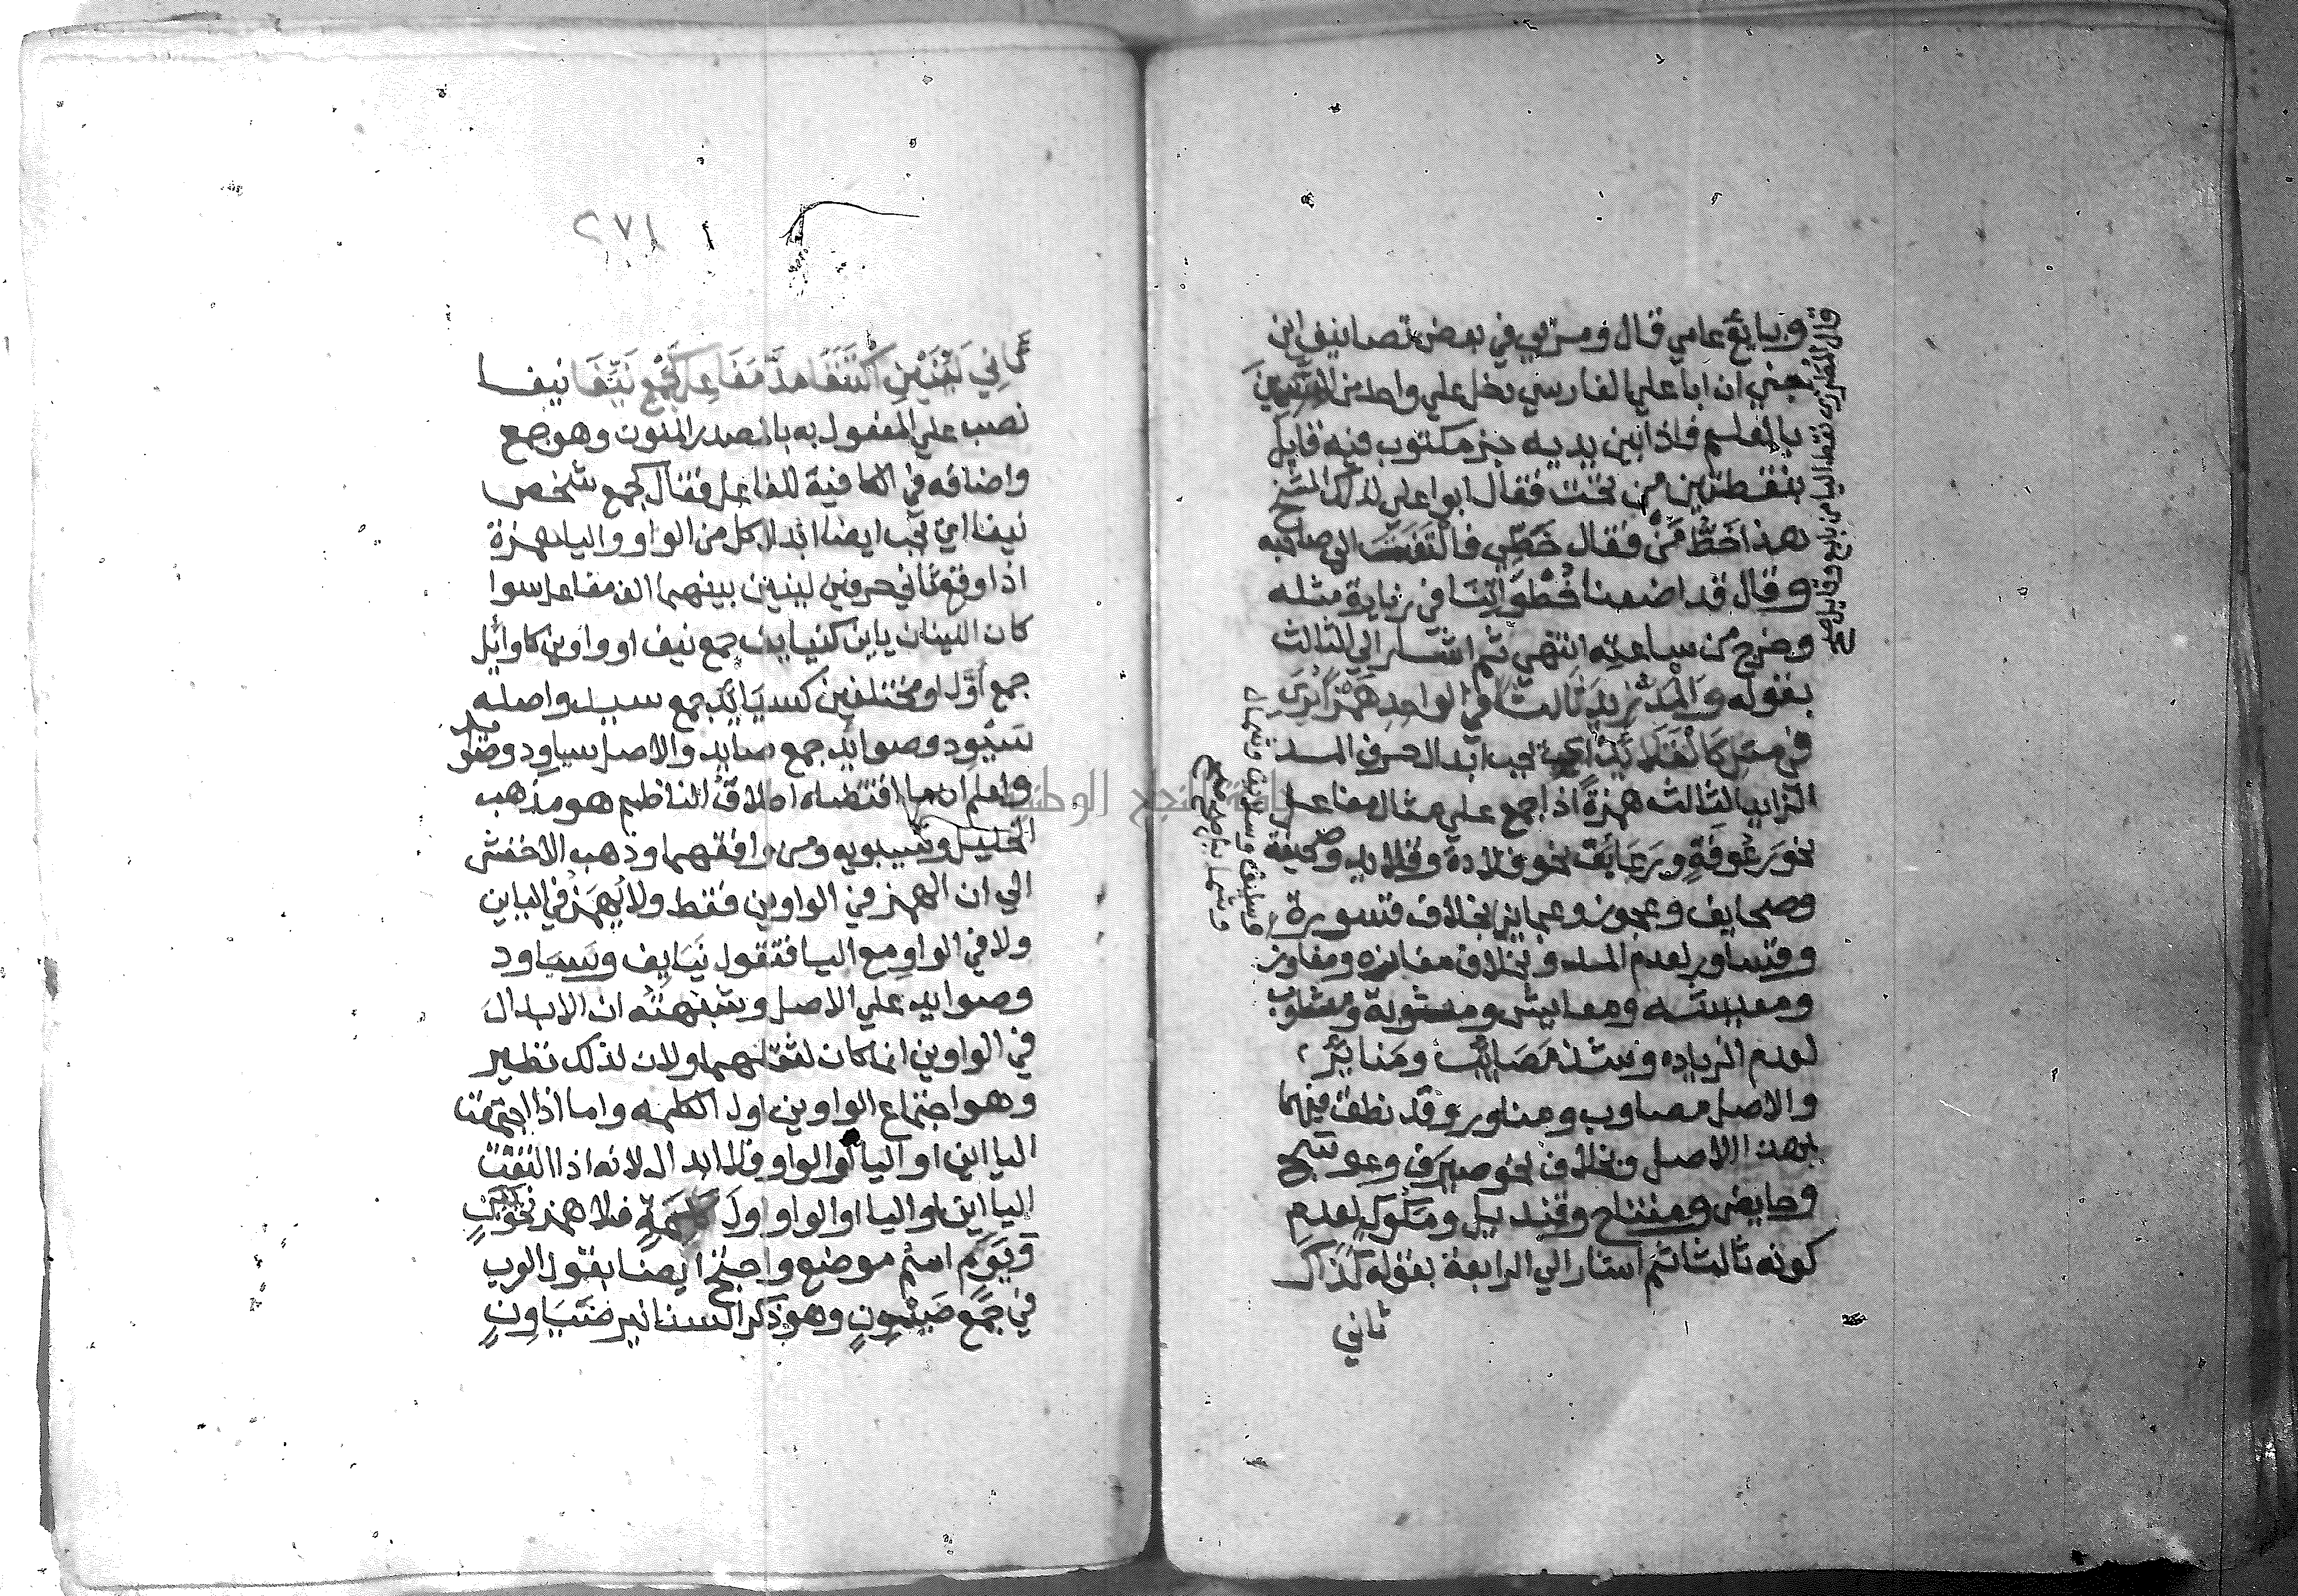 وبايع عامي قال ومر بي في بعض تصانيف ابن
جني ان ابا علي الفارسي دخل علي واحد من المتسمين
بالعلم فاذا بين يديه جزء مكتوب فيه قايل
بنقطتين من تحت فقال ابوا علي لذلك الشيخ
هذا خط من فقال خطي فالتفت الي صاحبه
وقال قد اضعنا خطواتنا في زيارة مثله
وخرج من ساعته انتهي ثم اشار الي الثالث
بقوله والمد زيد ثالثا في الواحد همزا يري
في مثل كالقلايد اي يجب ابدال حرف المد
الزايد الثالث همزة اذا جمع علي مثال مفاعل
نحو رعوفة ورعايف نحو قلادة وقلايد وصحيفة
وصحايف وعجوز وعجايز بخلاف قسورة
وقساور لعدم المد وبخلاف مفازه ومفاوز
ومعيشه ومعايش ومثوبة ومثاوب
لعدم الزياده وشذ مصايب ومناير
والاصل مصاوب ومناور وقد نطق فيهما
بهذا الاصل وبخلاف نحو صيرف وعوسج
وحايض ومفتاح وقنديل ومكوك لعدم
كونه ثالثا ثم اشار الي الرابعة بقوله كذاك
ثاني
قال المطرزي نقط اليا من بايع وقايل
٢٧١
ثاني لينين اكتنفا مد مفاعل كجمع نيفا نيفا
نصب علي المفعول به بالمصدر المنون وهو جمع
واضافه في الكافية للفاعل فقال كجمع شخص
نيفا اي يجب ايضا ابدال كل من الواو واليا همزة
اذا وقع ثاني حرفين لينين بينهما الف مفاعل سوا
كان اللينان يايين كنيايف جمع نيف او واوين كاوايل
جمع اول او مختلفين كسيايد جمع سيد واصله
سيود وصوايد جمع صايد والاصل سياود وصواد
واعلم ان ما اقتضاه اطلاق الناظم هو مذهب
الخليل وسيبويه ومن وافقهما وذهب الاخفش
الي ان الهمز في الواوين فقط ولا يهمز في اليايين
ولا في الواو مع اليا فتقول نيايف وسياود
وصوايد علي الاصل وشبهته ان الابدال
في الواوين انما كان لثقلهما ولان لذلك نظير
وهو اجتماع الواوين اول الكلمه واما اذا اجتمعت
اليااين او اليا والواو فلا ابدال لانه اذا التقت
اليااين او اليا والواو اول كلمة فلا همز نحو يين
ويوم اسم موضع واحتج ايضا بقول العرب
في جمع ضيون وهو ذكر السنانير ضياون